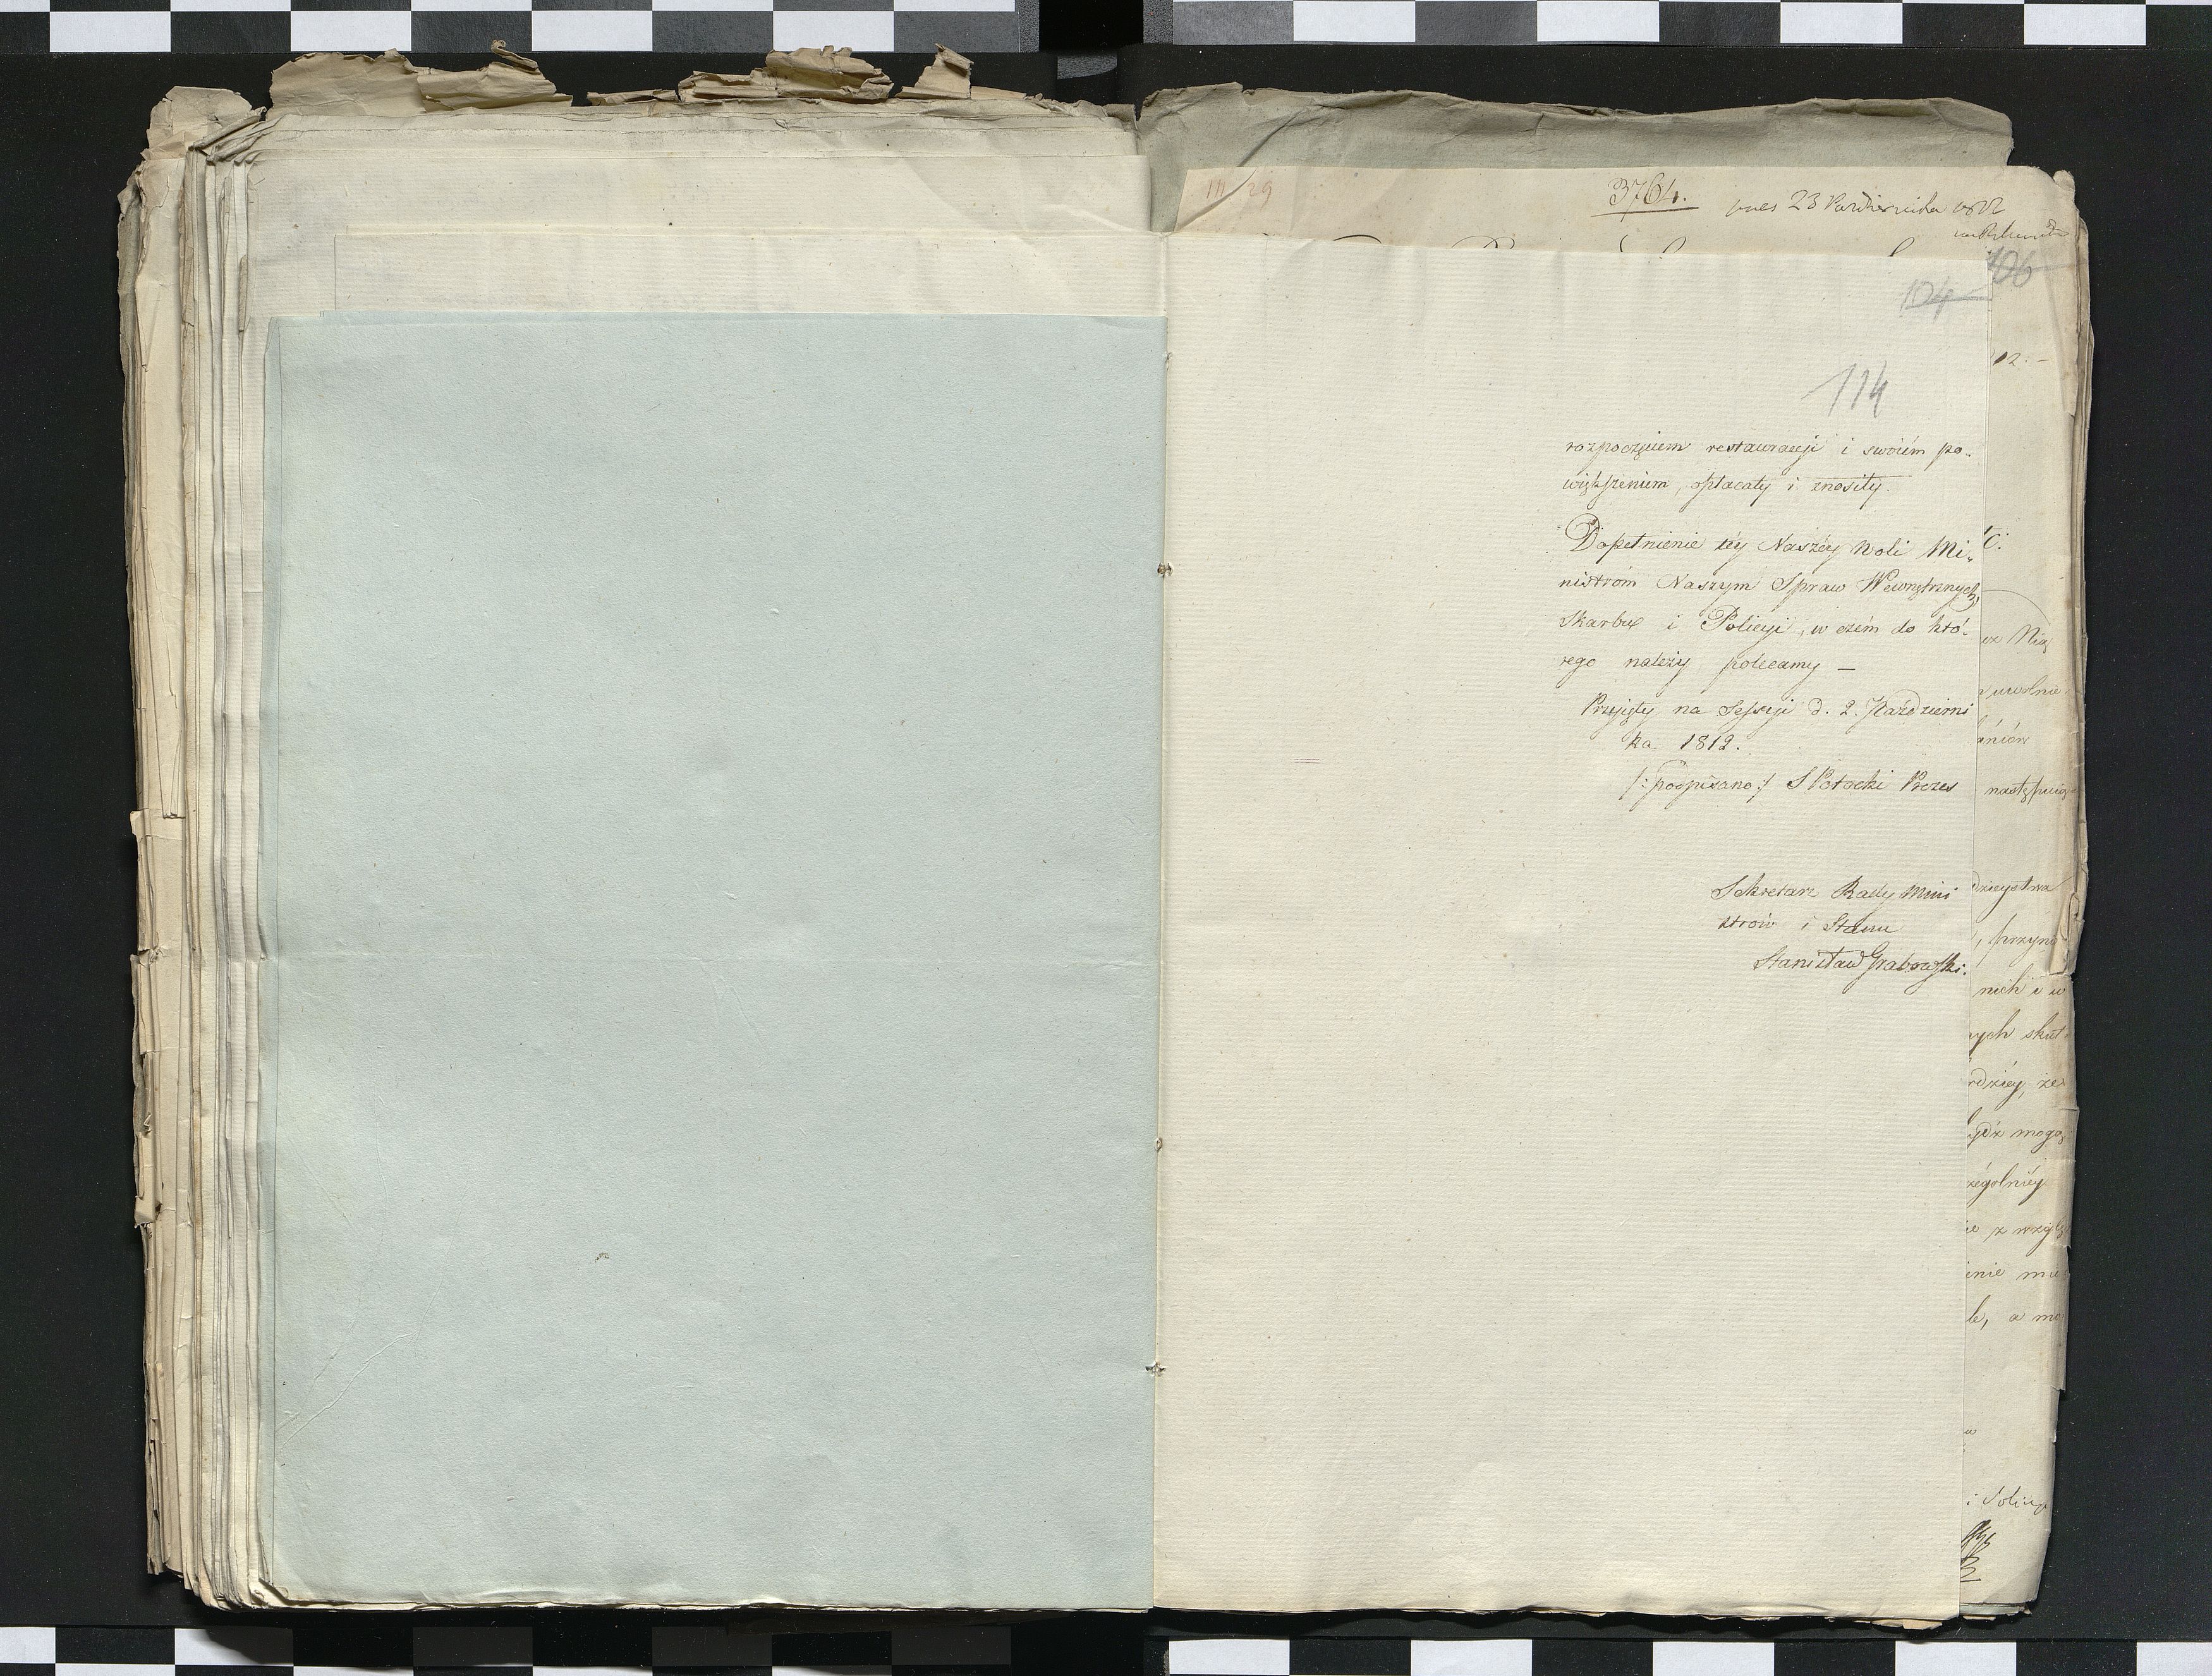 3764.
23 Października
106
104
114
rozpoczęciem restauracyi i swoiém po-
większeniem, opłacały i znosiły.
Dopełnienie téy Naszéy Woli Mi-
nistrom Naszym Spraw Wewnętrznych,
Skarbu i Policyi, w czém do któ-
rego należy polecamy —
Przyięty na Sessyi d. 2. Październi
ka 1812.
/: podpisano :/ S Potocki Prezes
Sekretarz Rady Mini
strów i Stanu
Stanisław Grabowski.
12. —
uwolnie
następuią
przyn
nich i w
ych skut
że
mogą
a mo